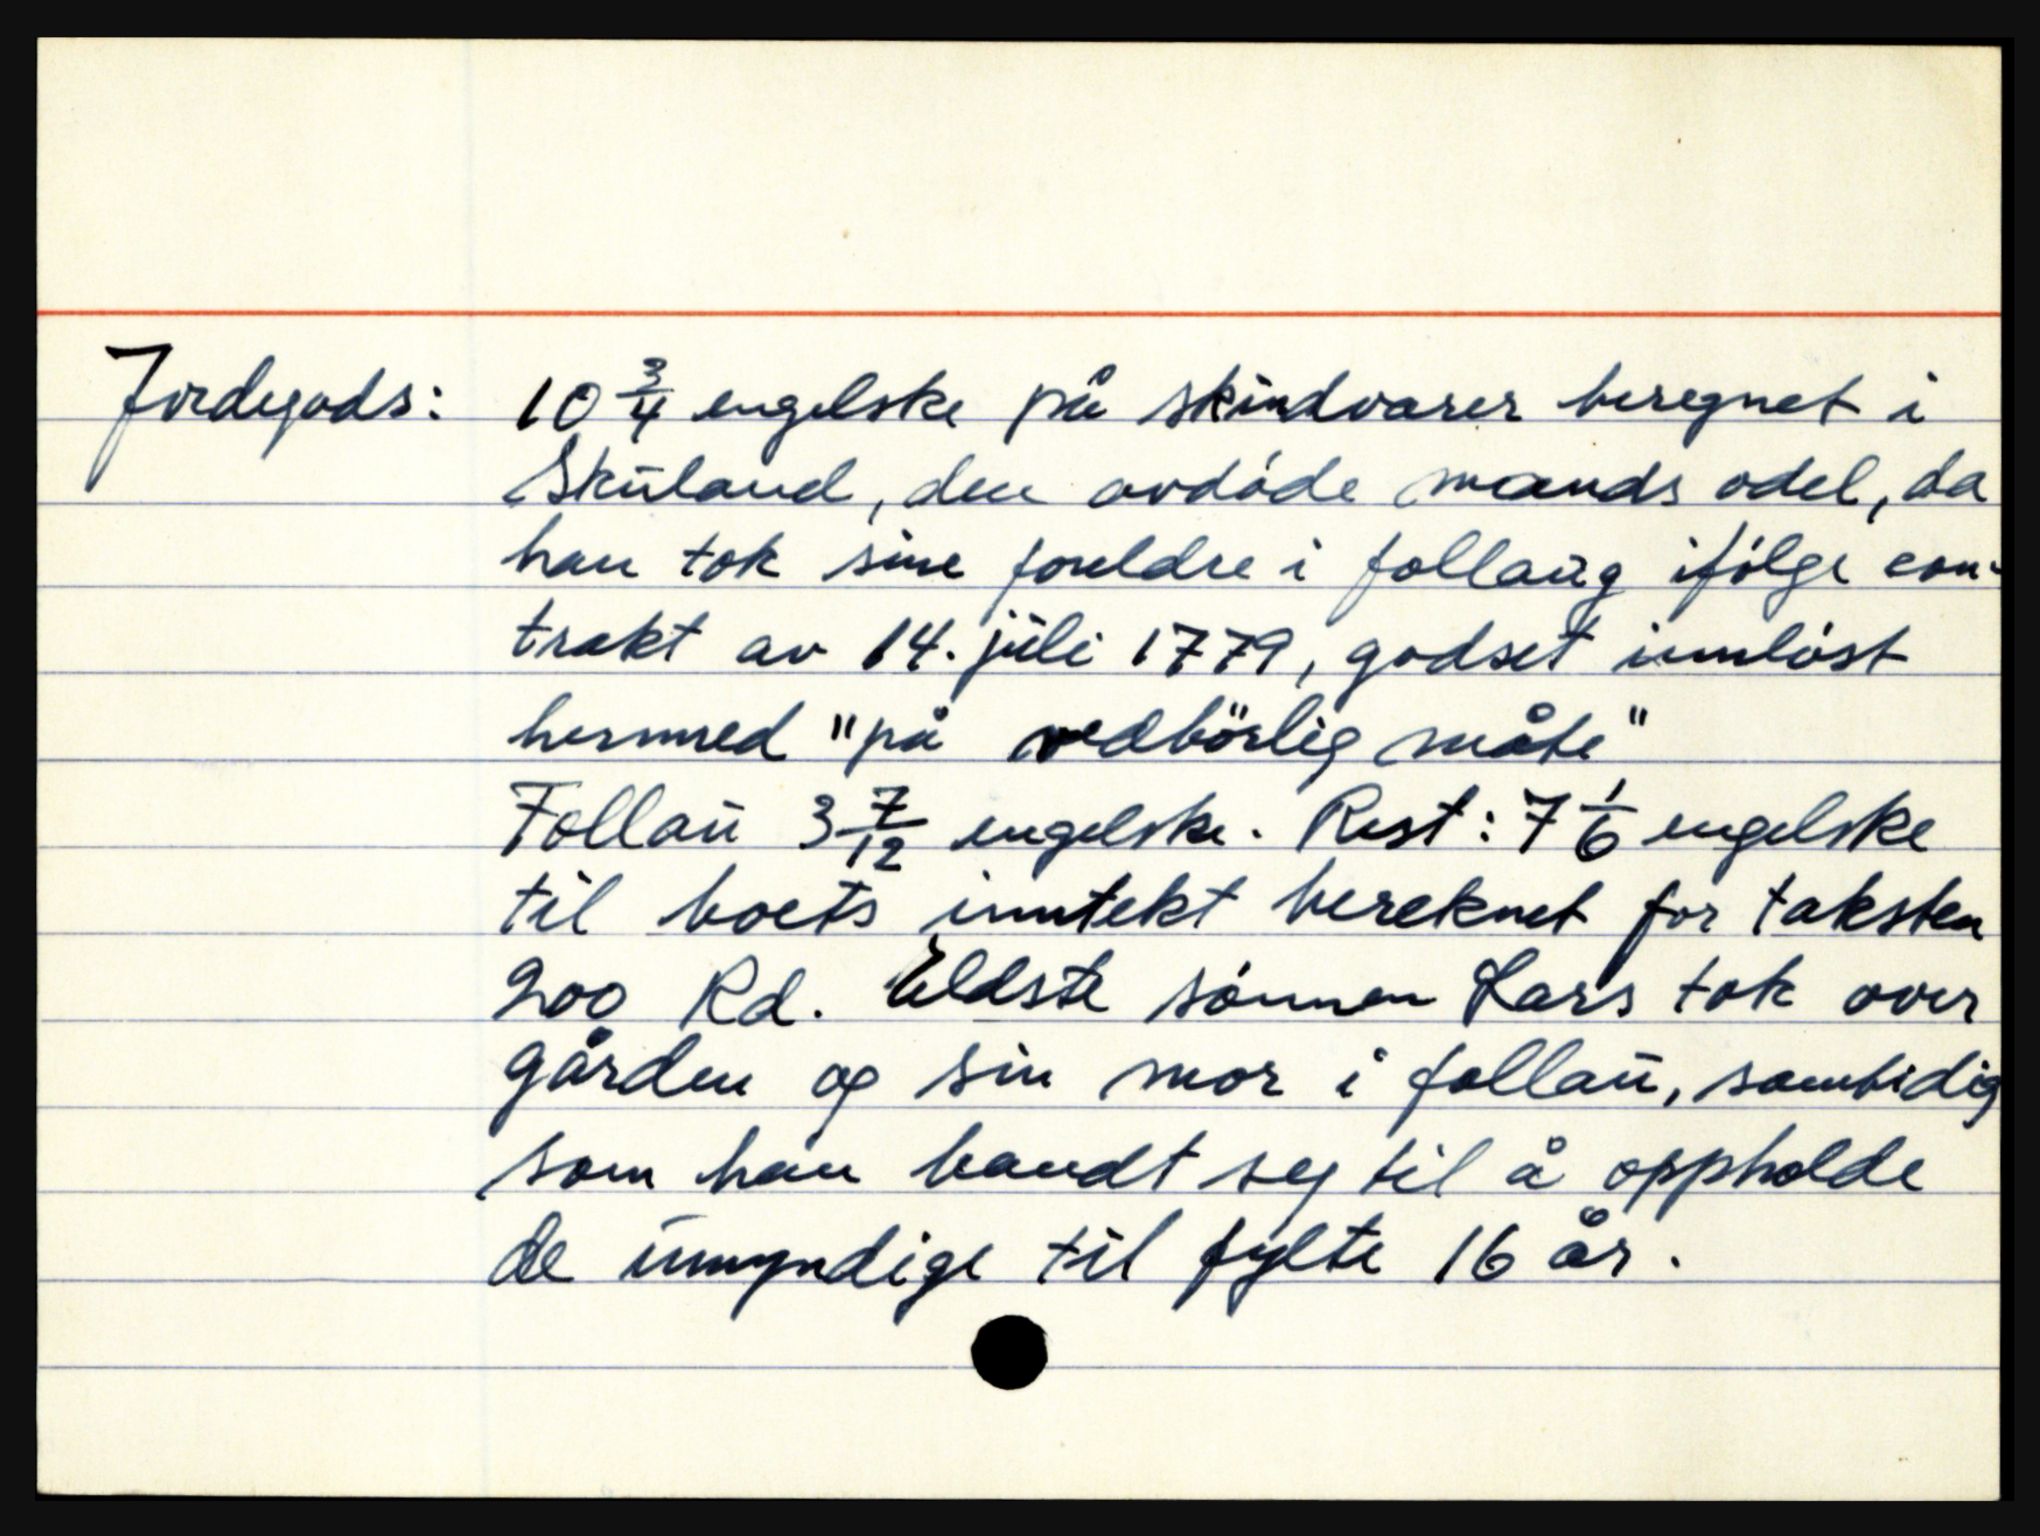 Jordegods: 10 3/4 engelske på skindvarer beregnet i
Skuland, den avdøde mands odel, da
han tok sine foreldre i follaug ifølge con-
trakt av 14. juli 1779, godset innløst
hermed "på vedbörlig måte"
Follau 3 7/12 engelske. Rest: 7 1/6 engelske
til boets inntekt bereknet for taksten
200 Rd. Eldste sønnen Lars tok over
gården og sin mor i follau, samtidig
som han bandt seg til å oppholde
de umyndige til fylte 16 år.